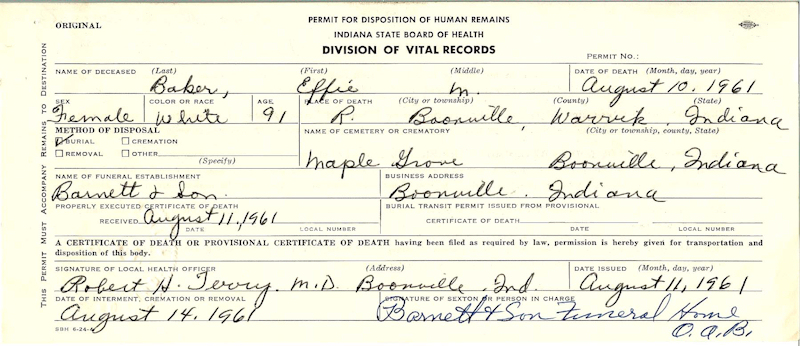 ORIGINAL
PERMIT FOR DISPOSITION OF HUMAN REMAINS
INDIANA STATE BOARD OF HEALTH
DIVISION OF VITAL RECORDS
PERMIT NO.:
THIS PERMIT MUST ACCOMPANY REMAINS TO DESTINATION
NAME OF DECEASED (Last) (First) (Middle) DATE OF DEATH (Month, day, year)
Baker, Effie M. August 10, 1961
SEX COLOR OR RACE AGE PLACE OF DEATH (City or township) (County) (State)
Female White 91 R. Boonville, Warrick, Indiana
METHOD OF DISPOSAL NAME OF CEMETERY OR CREMATORY (City or township, county, State)
BURIAL CREMATION
REMOVAL OTHER
(Specify)
Maple Grove Boonville, Indiana
NAME OF FUNERAL ESTABLISHMENT BUSINESS ADDRESS
Barnett & Son. Boonville. Indiana
PROPERLY EXECUTED CERTIFICATE OF DEATH BURIAL TRANSIT PERMIT ISSUED FROM PROVISIONAL
RECEIVED August 11, 1961 CERTIFICATE OF DEATH
DATE LOCAL NUMBER DATE LOCAL NUMBER
A CERTIFICATE OF DEATH OR PROVISIONAL CERTIFICATE OF DEATH having been filed as required by law, permission is hereby given for transportation and
disposition of this body.
SIGNATURE OF LOCAL HEALTH OFFICER (Address) DATE ISSUED (Month, day, year)
Robert H. Terry. M.D. Boonville, Ind. August 11, 1961
DATE OF INTERMENT, CREMATION OR REMOVAL SIGNATURE OF SEXTON OR PERSON IN CHARGE
August 14, 1961 Barnett & Son Funeral Home
O.A.B.
SBH 6-24-